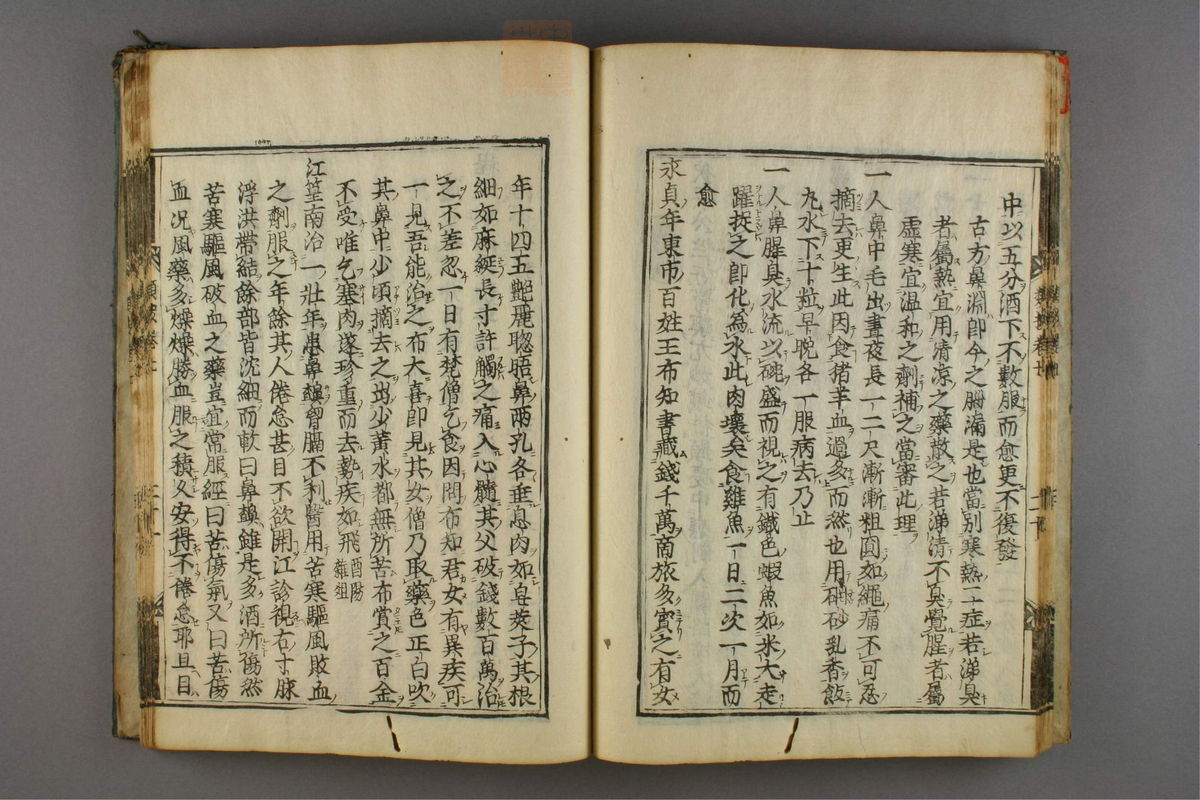 中以五分酒下不數服而愈更不復發
古方鼻淵卽今之腦漏是也當别寒熱二症若涕臭
者屬熱宜用清凉之藥散之若涕清不臭覺腥者屬
虚寒宜温和之劑補之當審此理
一人鼻中毛出晝夜長一二尺漸漸粗圓如繩痛不可忍
摘去更生此因食猪羊血過多而然也用硇砂乳香飯
丸水下十粒早晩各一服病去乃止
一人鼻腥臭水流以碗盛而視之有鐵色蝦魚如米大走
躍捉之卽化為水此肉壞矣食雞魚一日二次一月而
愈
永貞年東市百姓王布知書藏錢千萬商旅多賓之有女
年十四五艶麗聰晤鼻兩孔各垂息肉如皂莢子其根
細如麻綖長寸許觸之痛入心髓其父破錢數百萬治
之不差忽一日有梵僧乞食因問布知君女有異疾可
一見吾能治之布大喜卽見其女僧乃取藥色正白吹
其鼻中少頃摘去之出少黄水都無所苦布賞之百金
不受唯乞塞肉遂珍重而去勢疾如飛酉陽雜俎
江篁南治一壯年患鼻䶊胷膈不利醫用苦寒驅風敗血
之劑服之年餘其人倦怠甚目不欲開江診視右寸脉
浮洪帶結餘部皆沈細而軟曰鼻䶊雖是多酒所傷然
苦寒驅風破血之藥豈宜常服經曰苦傷氣又曰苦傷
血况風藥多燥燥勝血服之積久安得不倦怠耶且目